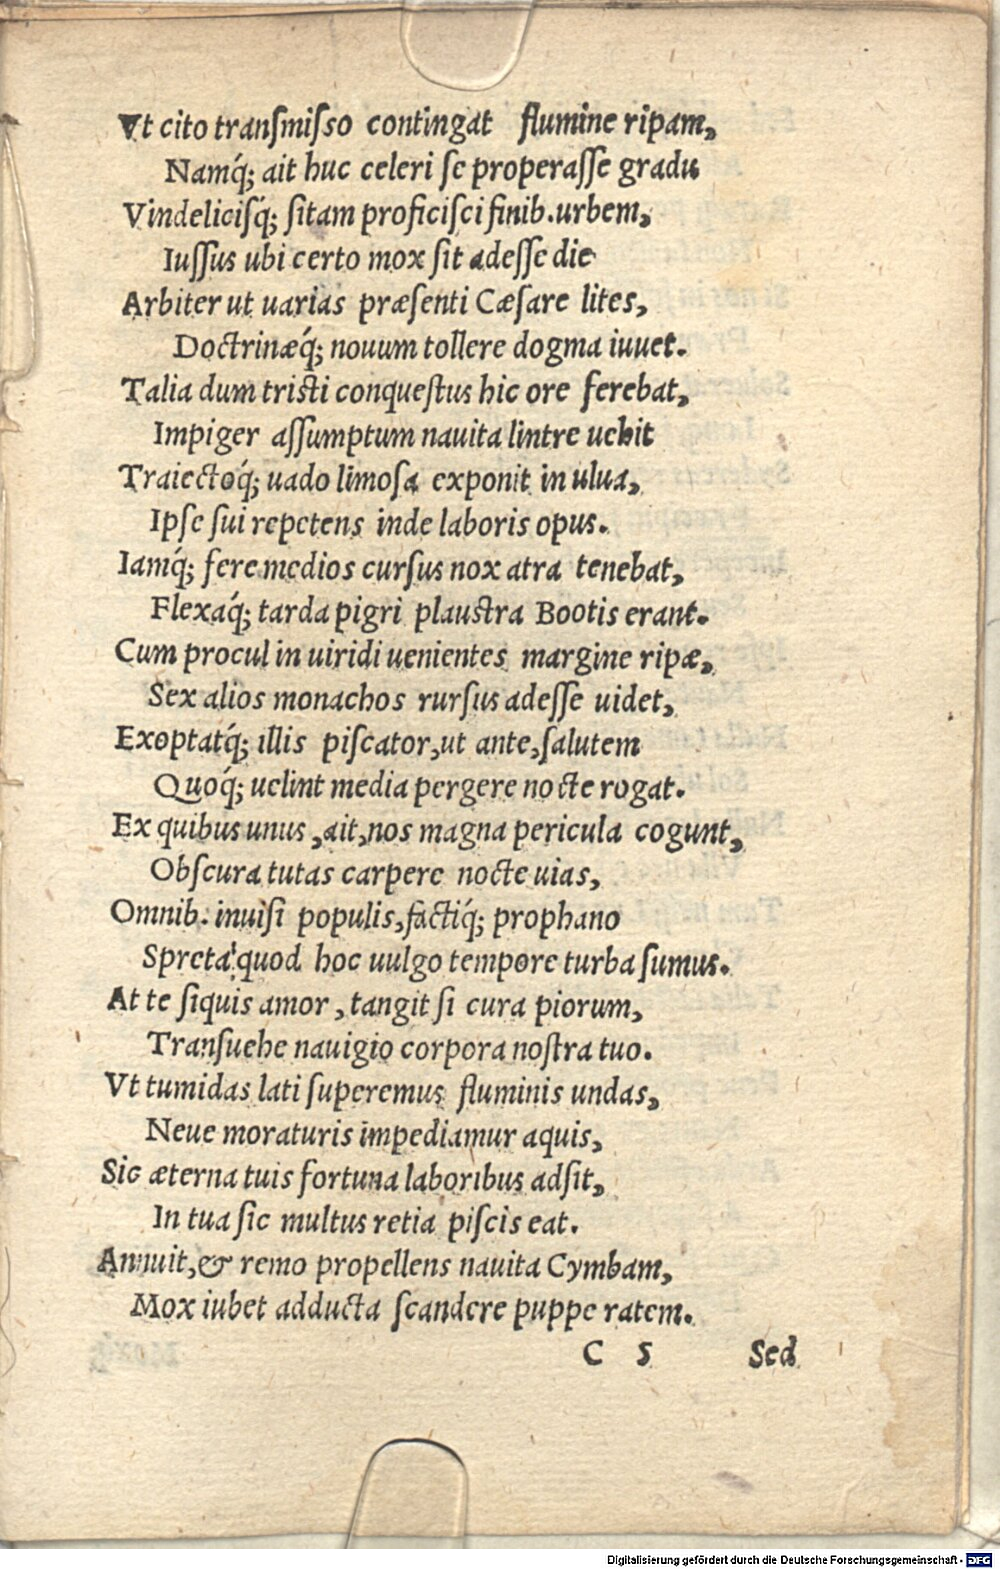 Vt cito tranſmiſso contingat flumine ripam,
Namq́; ait huc celeri ſe properaſſe gradu
Vindelicisq́; ſitam proficiſci finib. urbem,
Iuſſus ubi certo mox ſit adeſſe die
Arbiter ut uarias præſenti Cæſare lites,
Doctrinæq́; nouum tollere dogma iuuet.
Talia dum triſti conqueſtus hic ore ferebat,
Impiger aſſumptum nauita lintre uehit
Traiectoq́; uado limoſa exponit in ulua,
Ipſe ſui repetens inde laboris opus.
Iamq́; fere medios curſus nox atra tenebat,
Flexaq́; tarda pigri plauſtra Bootis erant.
Cum procul in uiridi uenientes margine ripæ,
Sex alios monachos rurſus adeſſe uidet,
Exoptatq́; illis piſcator, ut ante, ſalutem
Quoq́; uelint media pergere nocte rogat.
Ex quibus unus, ait, nos magna pericula cogunt,
Obſcura tutas carpere nocte uias,
Omnib. inuiſi populis, factiq́; prophano
Spreta quod hoc uulgo tempore turba ſumus.
At te ſiquis amor, tangit ſi cura piorum,
Tranſuehe nauigio corpora noſtra tuo.
Vt tumidas lati ſuperemus fluminis undas,
Neue moraturis impediamur aquis,
Sic æterna tuis fortuna laboribus adſit,
In tua ſic multus retia piſcis eat.
Annuit, & remo propellens nauita Cymbam,
Mox iubet adducta ſcandere puppe ratem.
C 5 Sed
Digitalisierung gefördert durch die Deutsche Forschungsgemeinschaft - DFG